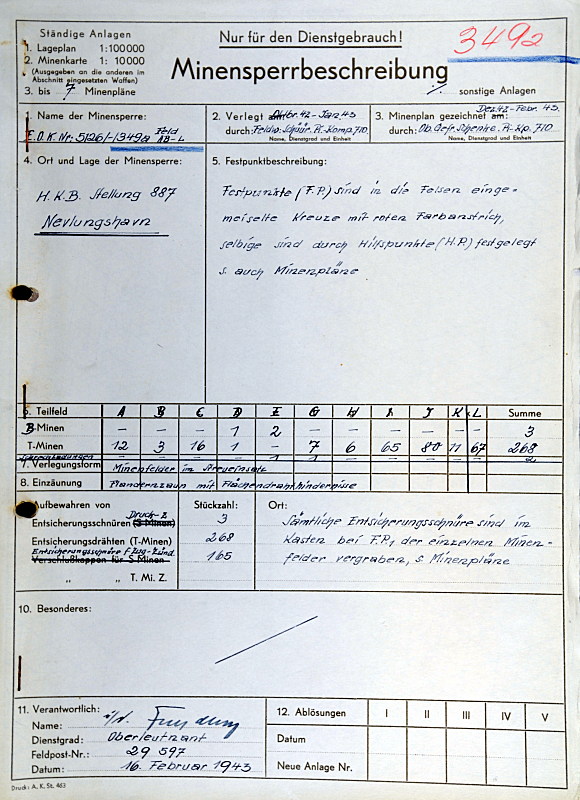 Ständige Anlagen
1. Lageplan 1:100000
2. Minenkarte 1: 10000
(Ausgegeben an die anderen im
Abschnitt eingesetzten Waffen)
3. bis 7 Minenpläne
Nur für den Dienstgebrauch!
Minensperrbeschreibung
3492
·/. sonstige Anlagen
1. Name der Minensperre:
E.O.K. Nr. 5126/-1349a Feld
AB-L
2. Verlegt Oktbr. 42 - Jan. 43
durch: Feldw. Schnür. Pi.-Komp. 710
Name, Dienstgrad und Einheit
3. Minenplan gezeichnet am: Dez. 42-Febr. 43.
durch: Ob. Gefr. Schenke. Pi.-Kp. 710
Name, Dienstgrad und Einheit
4. Ort und Lage der Minensperre:
H.K.B. Stellung 887
Nevlungshavn
5. Festpunktbeschreibung:
Festpunkte (F.P.) sind in die Felsen einge=
meiselte Kreuze mit roten Farbanstrich,
selbige sind durch Hilfspunkte (H.P.) festgelegt
s. auch Minenpläne
6. Teilfeld A B C D E G H J K L Summe
B-Minen – – – 1 2 – – – – – – 3
T-Minen 12 3 16 1 – 7 6 65 80 11 67 268
– – – – 1 1 – – – – – 2
7. Verlegungsform Minenfelder im Streueinsatz
8. Einzäunung Flandernzaun mit Flächendrahthindernisse
Aufbewahren von Stückzahl: Ort:
Druck-Z
Entsicherungsschnüren (S-Minen) 3
Entsicherungsdrähten (T-Minen) 268
Entsicherungsschnüre f. Zug-Zünd. 165
Verschlußkappen für S-Minen
„ „ T. Mi. Z.
Sämtliche Entsicherungsschnüre sind im
Kasten bei F.P., der einzelnen Minen-
felder vergraben, s. Minenpläne
10. Besonderes:
11. Verantwortlich:
Name:
Dienstgrad: Oberleutnant
Feldpost-Nr.: 29 597
Datum: 16. Februar 1943
12. Ablösungen I II III IV V
Datum
Neue Anlage Nr.
Druck: A. K. St. 463